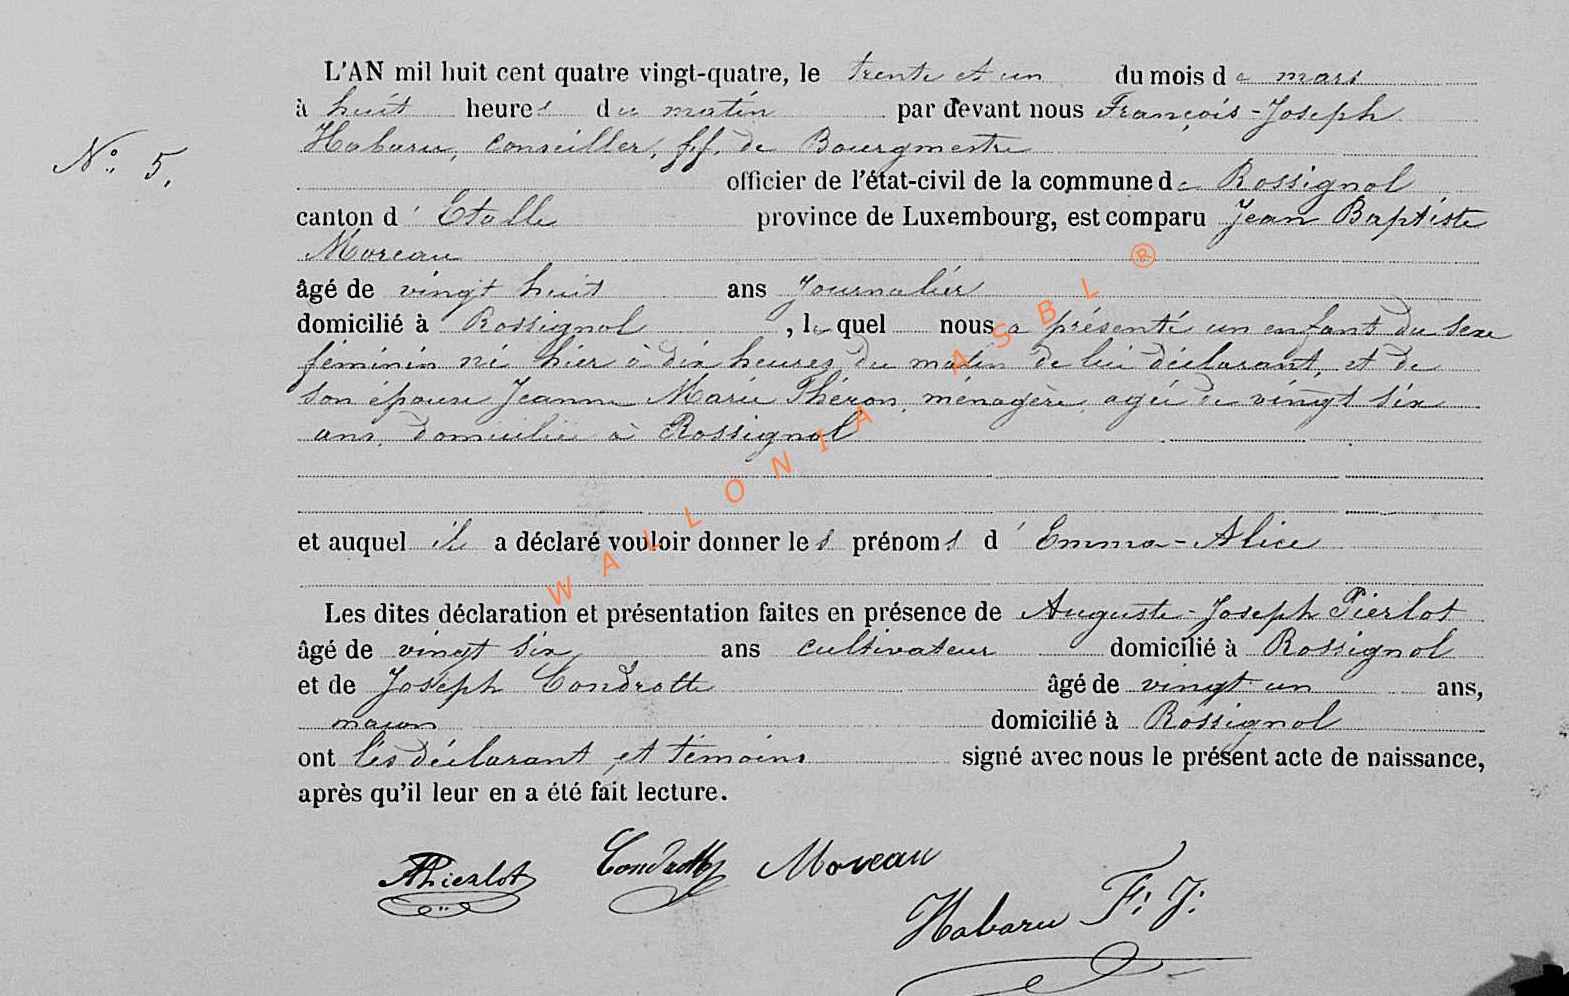 L'AN mil huit cent quatre vingt-quatre, le trente et un du mois de mars
à huit heures du matin par devant nous François-Joseph
N° 5.
Habaru, Conseiller, ff. de Bourgmestre
officier de l'état-civil de la commune de Rossignol
canton d'Etalle province de Luxembourg, est comparu Jean Baptiste
Moreau
âgé de vingt huit ans Journalier
domicilié à Rossignol, lequel nous a présenté un enfant du sexe
féminin né hier à dix heures du matin de lui déclarant, et de
son épouse Jeanne Marie Théron, ménagère, agée de vingt six
ans, domiciliée à Rossignol
et auquel il a déclaré vouloir donner les prénoms d'Emma-Alice
Les dites déclaration et présentation faites en présence de Auguste-Joseph Pierlot
âgé de vingt six ans cultivateur domicilié à Rossignol
et de Joseph Condrotte âgé de vingt un ans,
maçon domicilié à Rossignol
ont les déclarant et témoins signé avec nous le présent acte de naissance,
après qu'il leur en a été fait lecture.
APierlot Condrotte Moreau
Habaru F. J.
WALLONIA ASBL ®